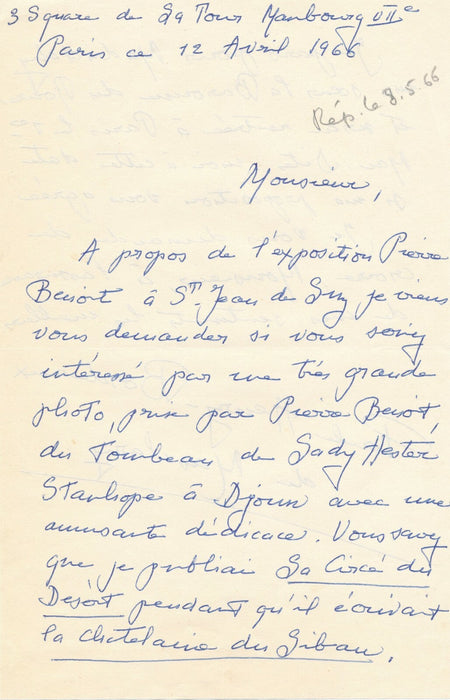 3 Square de La Tour Maubourg VIIe
Paris ce 12 Avril 1966
Rép. le 8.5.66
Monsieur,
A propos de l'exposition Pierre
Benoit à St. Jean de Luz je viens
vous demander si vous seriez
intéressé par une très grande
photo, prise par Pierre Benoit,
du Tombeau de Lady Hester
Stanhope à Djoun avec une
amusante dédicace. Vous savez
que je publiai La Circé du
Désert pendant qu'il écrivait
la chatelaine du Liban.